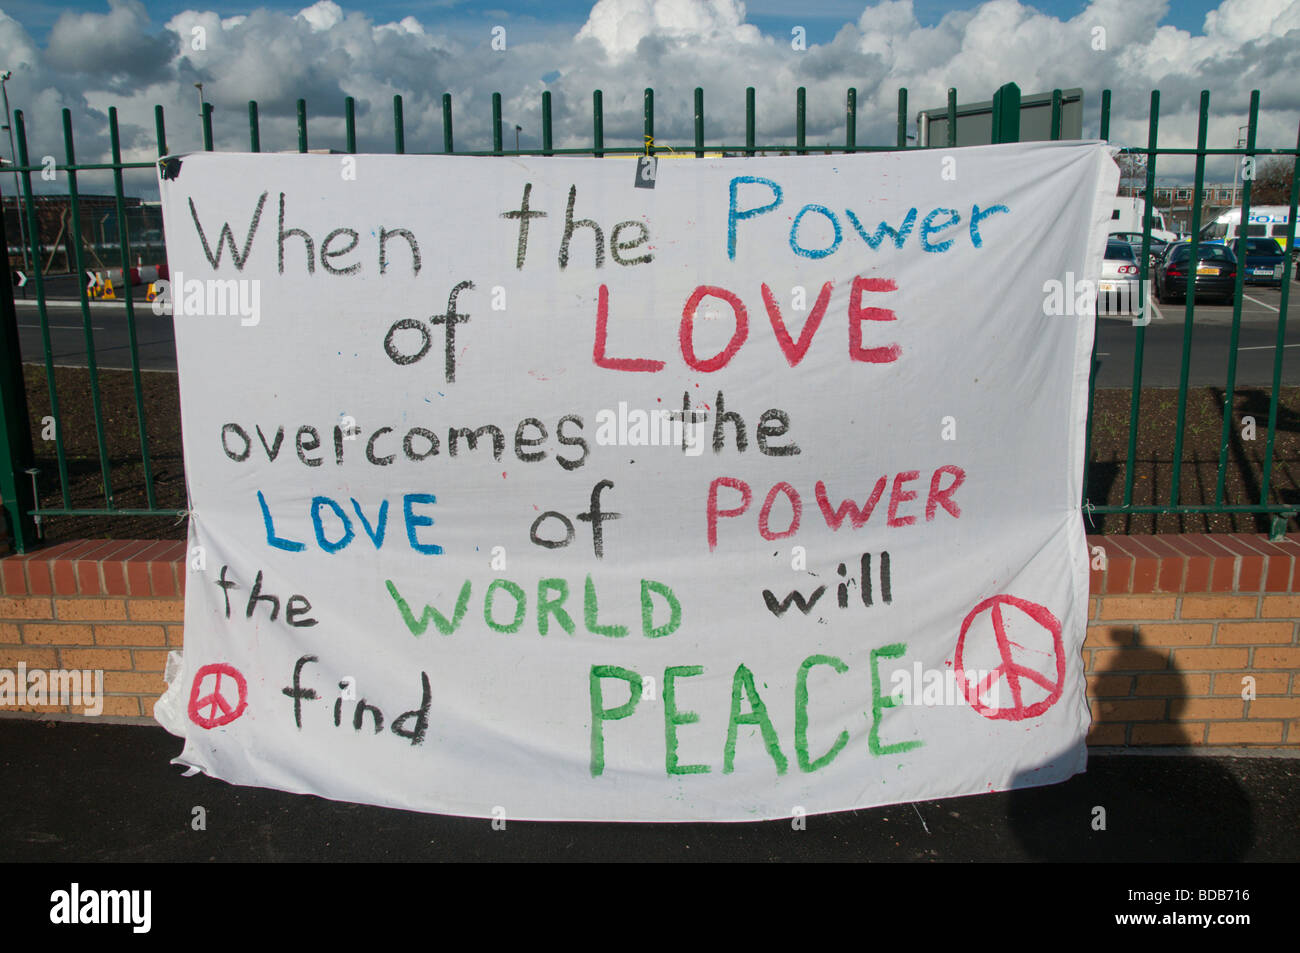 When the Power
of LOVE
overcomes the
LOVE of POWER
the WORLD will
find PEACE
POLICE
alamy
Image ID: BDB716
www.alamy.com